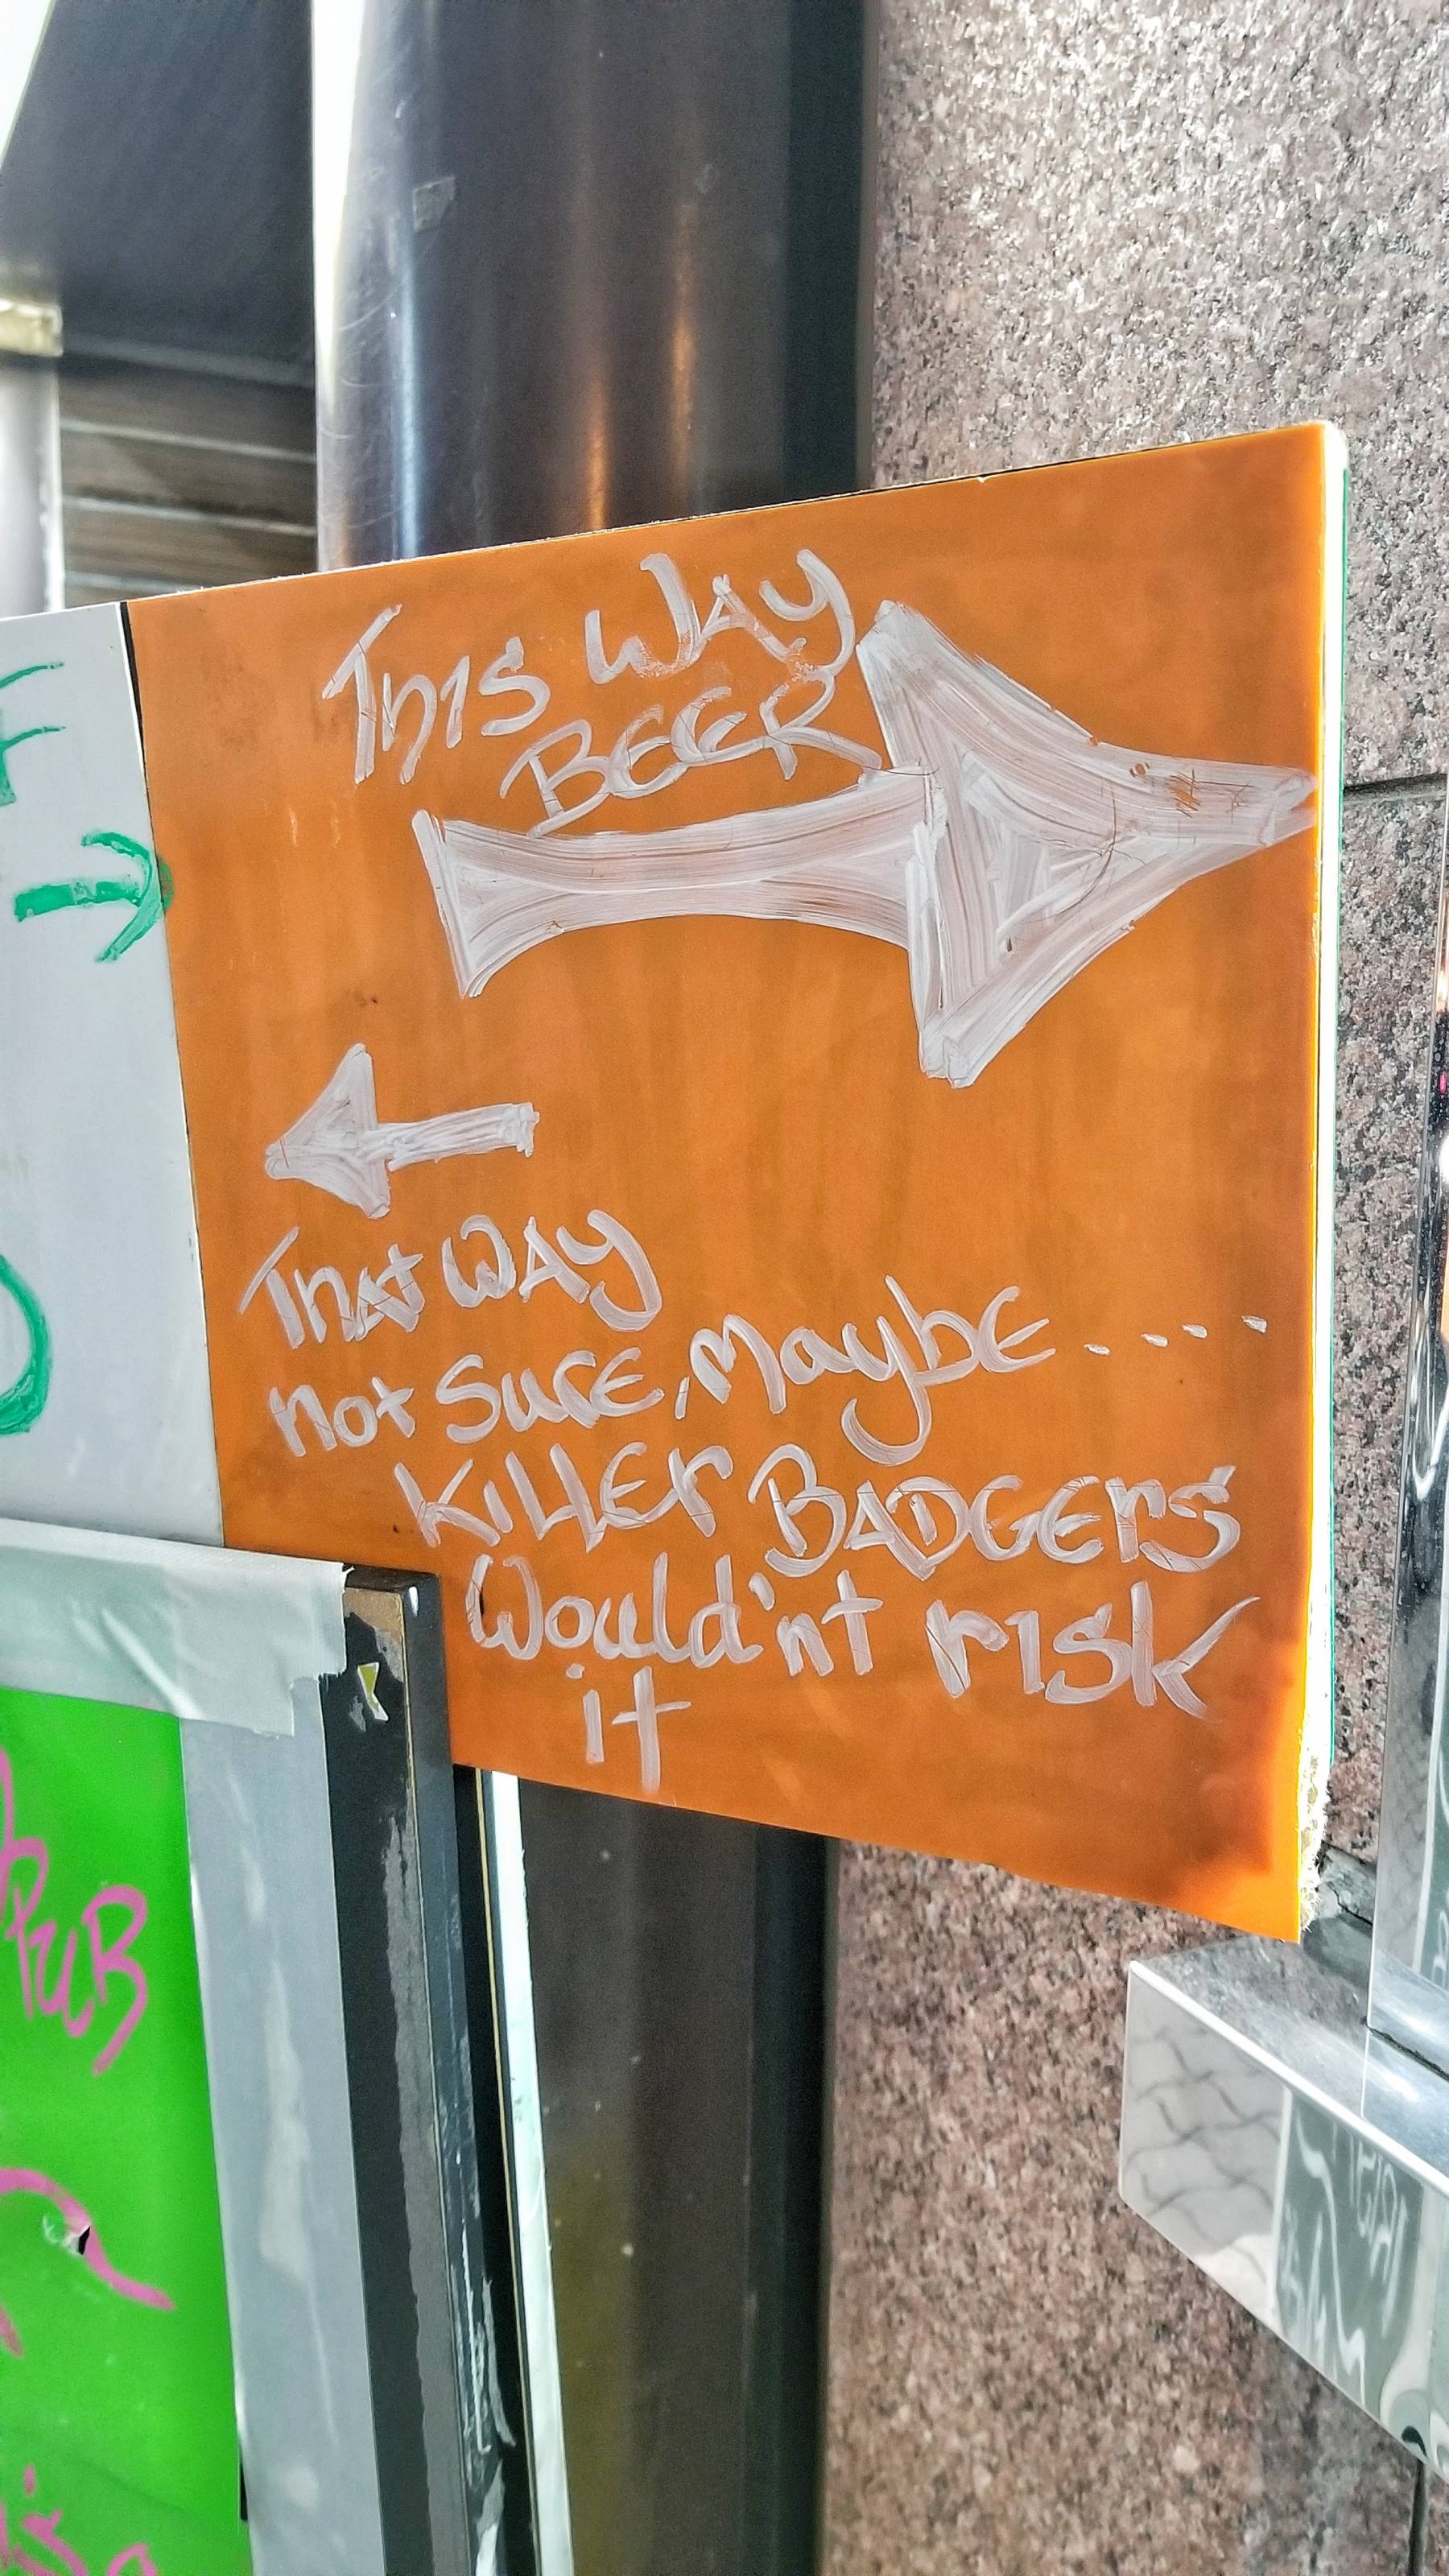 This WAY
BEER
That WAY
not Sure, MaybE ....
KillEr BADGErs
Would'nt risk
it
PuB